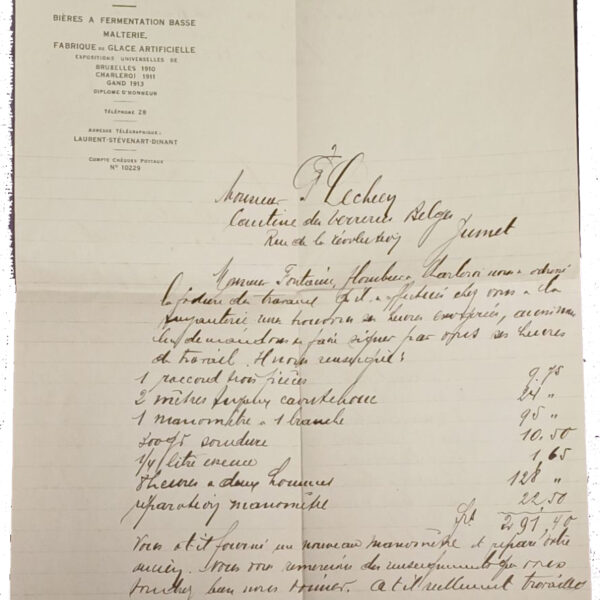 BIÈRES A FERMENTATION BASSE
MALTERIE,
FABRIQUE DE GLACE ARTIFICIELLE
EXPOSITIONS UNIVERSELLES DE
BRUXELLES 1910
CHARLEROI 1911
GAND 1913
DIPLOME D'HONNEUR
TÉLÉPHONE 28
ADRESSE TÉLÉGRAPHIQUE:
LAURENT-STÉVENART-DINANT
COMPTE CHÈQUES POSTAUX
No 10229
Monsieur
Cantine des Verreries Belges
Rue de la Jumet
Monsieur Fontaine, Plombier à Charleroi nous a adressé
la facture des travaux qu'il a effectués chez vous à la
nous trouvons les heures exagérées, aussi nous
lui demandons de faire signer par vous ses heures
de travail. Il nous renseigne:
1 raccord trois pièces 9.75
2 mètres tuyaux caoutchouc 24 "
1 manomètre à 1 branche 95 "
soudure 10.50
1/4 litre essence 1.65
8 heures à deux hommes 128 "
réparation manomètre 22.50
Frs 291.40
Vous a t il fourni un nouveau manomètre et réparé votre
ancien. Nous vous remercions des renseignements que vous
voudrez bien nous donner. A t il réellement travaillé